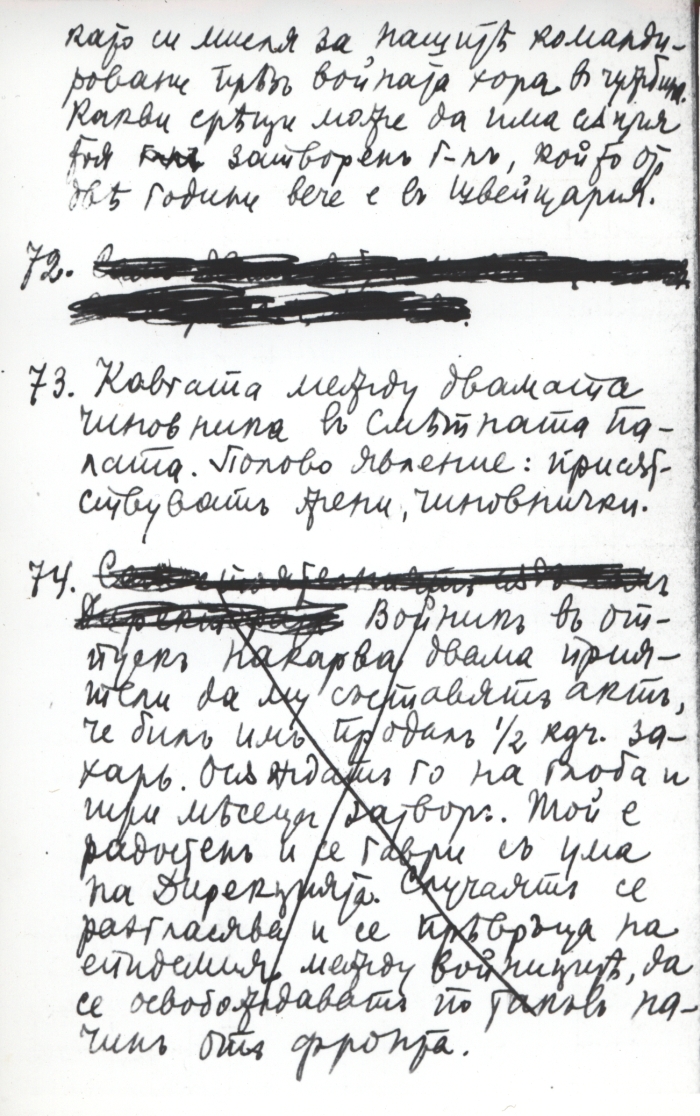 като си мисля за нашитѣ команди-
ровани прѣзъ войната хора въ чужбина.
Какви срѣщи може да има
тоя затворенъ г-нъ, който отъ
двѣ години вече е въ Швейцария.
72.
73. Кавгата между двамата
чиновника въ Смѣтната па-
лата. Ново явление: присѫт-
ствуватъ жени, чиновнички.
74.
Войникъ въ от-
пускъ накарва двама прия-
тели да му съставятъ актъ,
че билъ имъ продалъ 1/2 кгч. за-
харь. Осѫждатъ го на глоба и
три мѣсеца затворъ. Той е
радостенъ и се гаври съ ума
на Дирекцията. Случаятъ се
разгласява и се прѣвръща на
епидемия между войницитѣ, да
се освобождаватъ по такъвъ на-
чинъ отъ фронта.